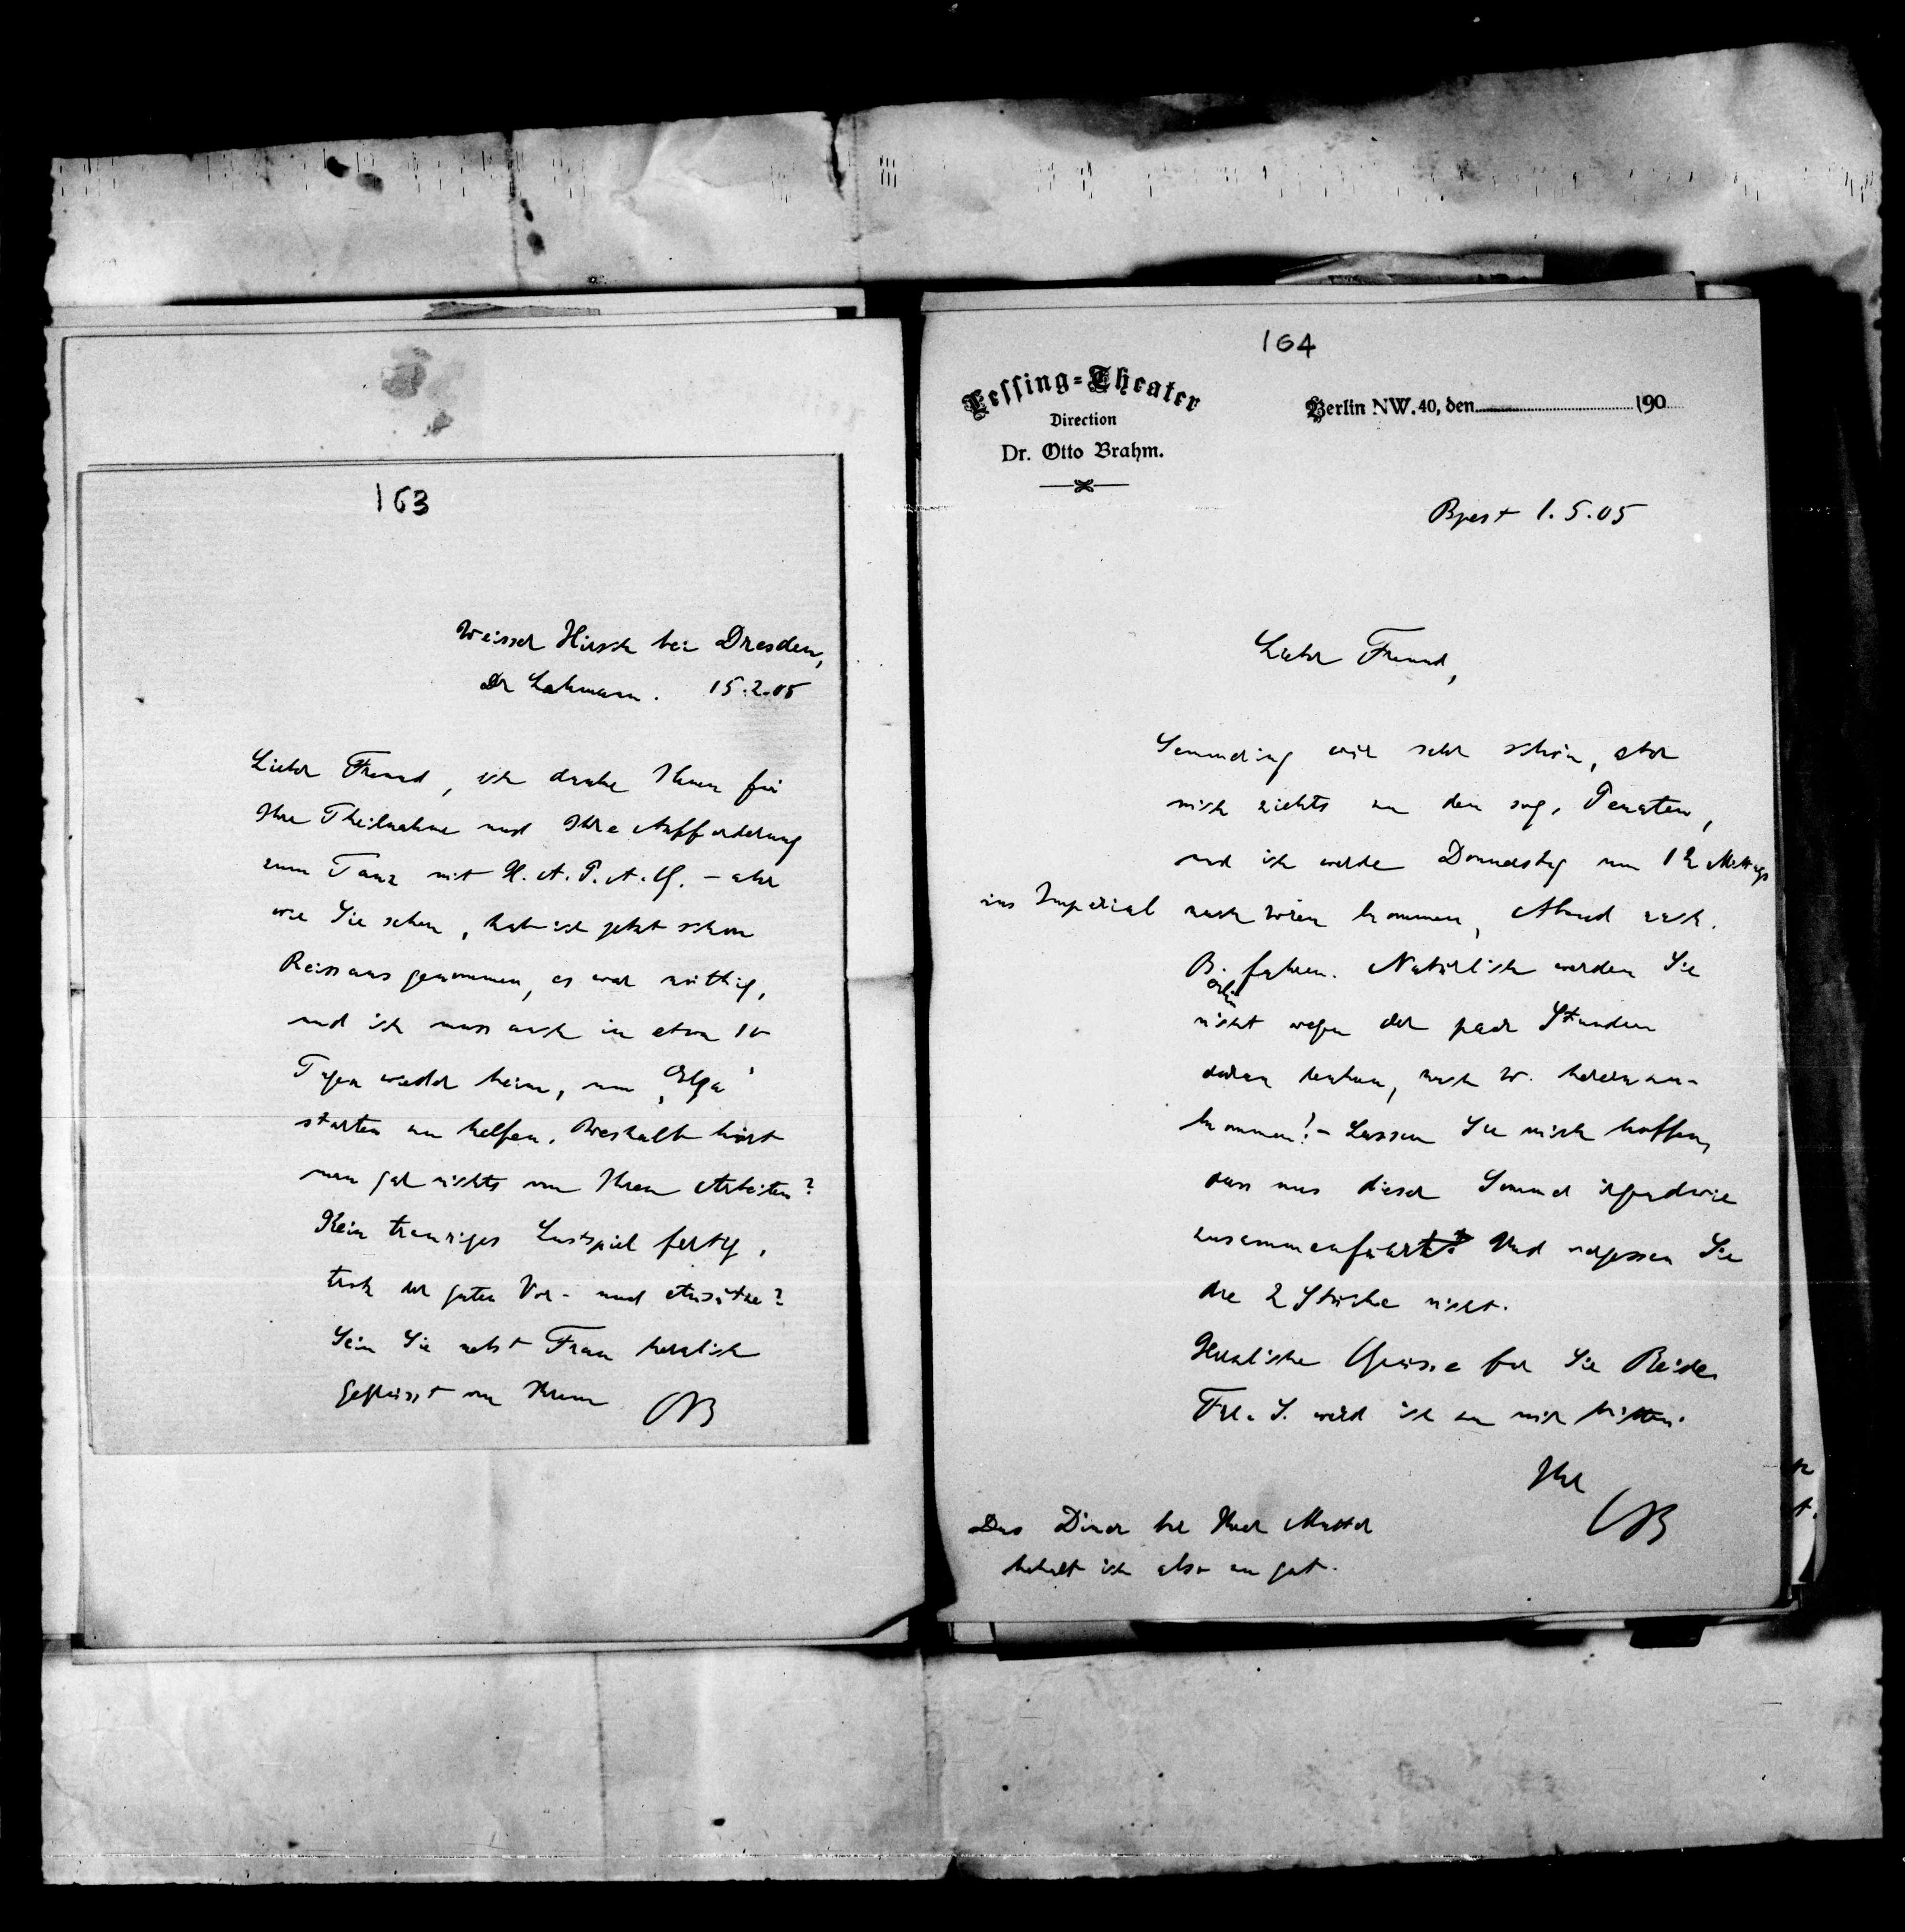 163
Weisser Hirsch bei Dresden,
Dr Lahmann. 15.2.05
Lieber Freund, ich danke Ihnen für
Ihre Theilnahme und Ihre Aufforderung
zum Tanz mit H.A.P.A.G. – aber
wie Sie sehen, hab ich jetzt schon
Reissaus genommen, es war nöthig,
und ich muss auch in etwa 10
Tagen wieder heim, um „Elga“
starten zu helfen. Weshalb hört
man gar nichts von Ihren Arbeiten?
Kein trauriges Lustspiel fertig,
trotz der guten Vor- und Ansätze?
Sein Sie nebst Frau herzlich
gegrüsst von Ihrem OB
164
Lessing-Theater
Direction
Dr. Otto Brahm.
Berlin NW. 40, den 190
Bpest 1.5.05
Lieber Freund,
Semmering wär sehr schön, aber
mich ziehts zu den sog. Penaten,
und ich werde Donnerstag um 12 Mittags
ins Imperial nach Wien kommen, Abend nach
Berlin fahren. Natürlich werden Sie
nicht wegen der paar Stunden
daran denken, nach W. hereinzu-
kommen! – Lassen Sie mich hoffen,
dass uns dieser Sommer irgendwie
zusammenführt. Und vergessen Sie
die 2 Stücke nicht.
Herzliche Grüsse für Sie Beide.
Frl. S. werd ich zu mir bitten.
Ihr
OB
Das Diner bei Ihrer Mutter
behalt ich also zu gut.